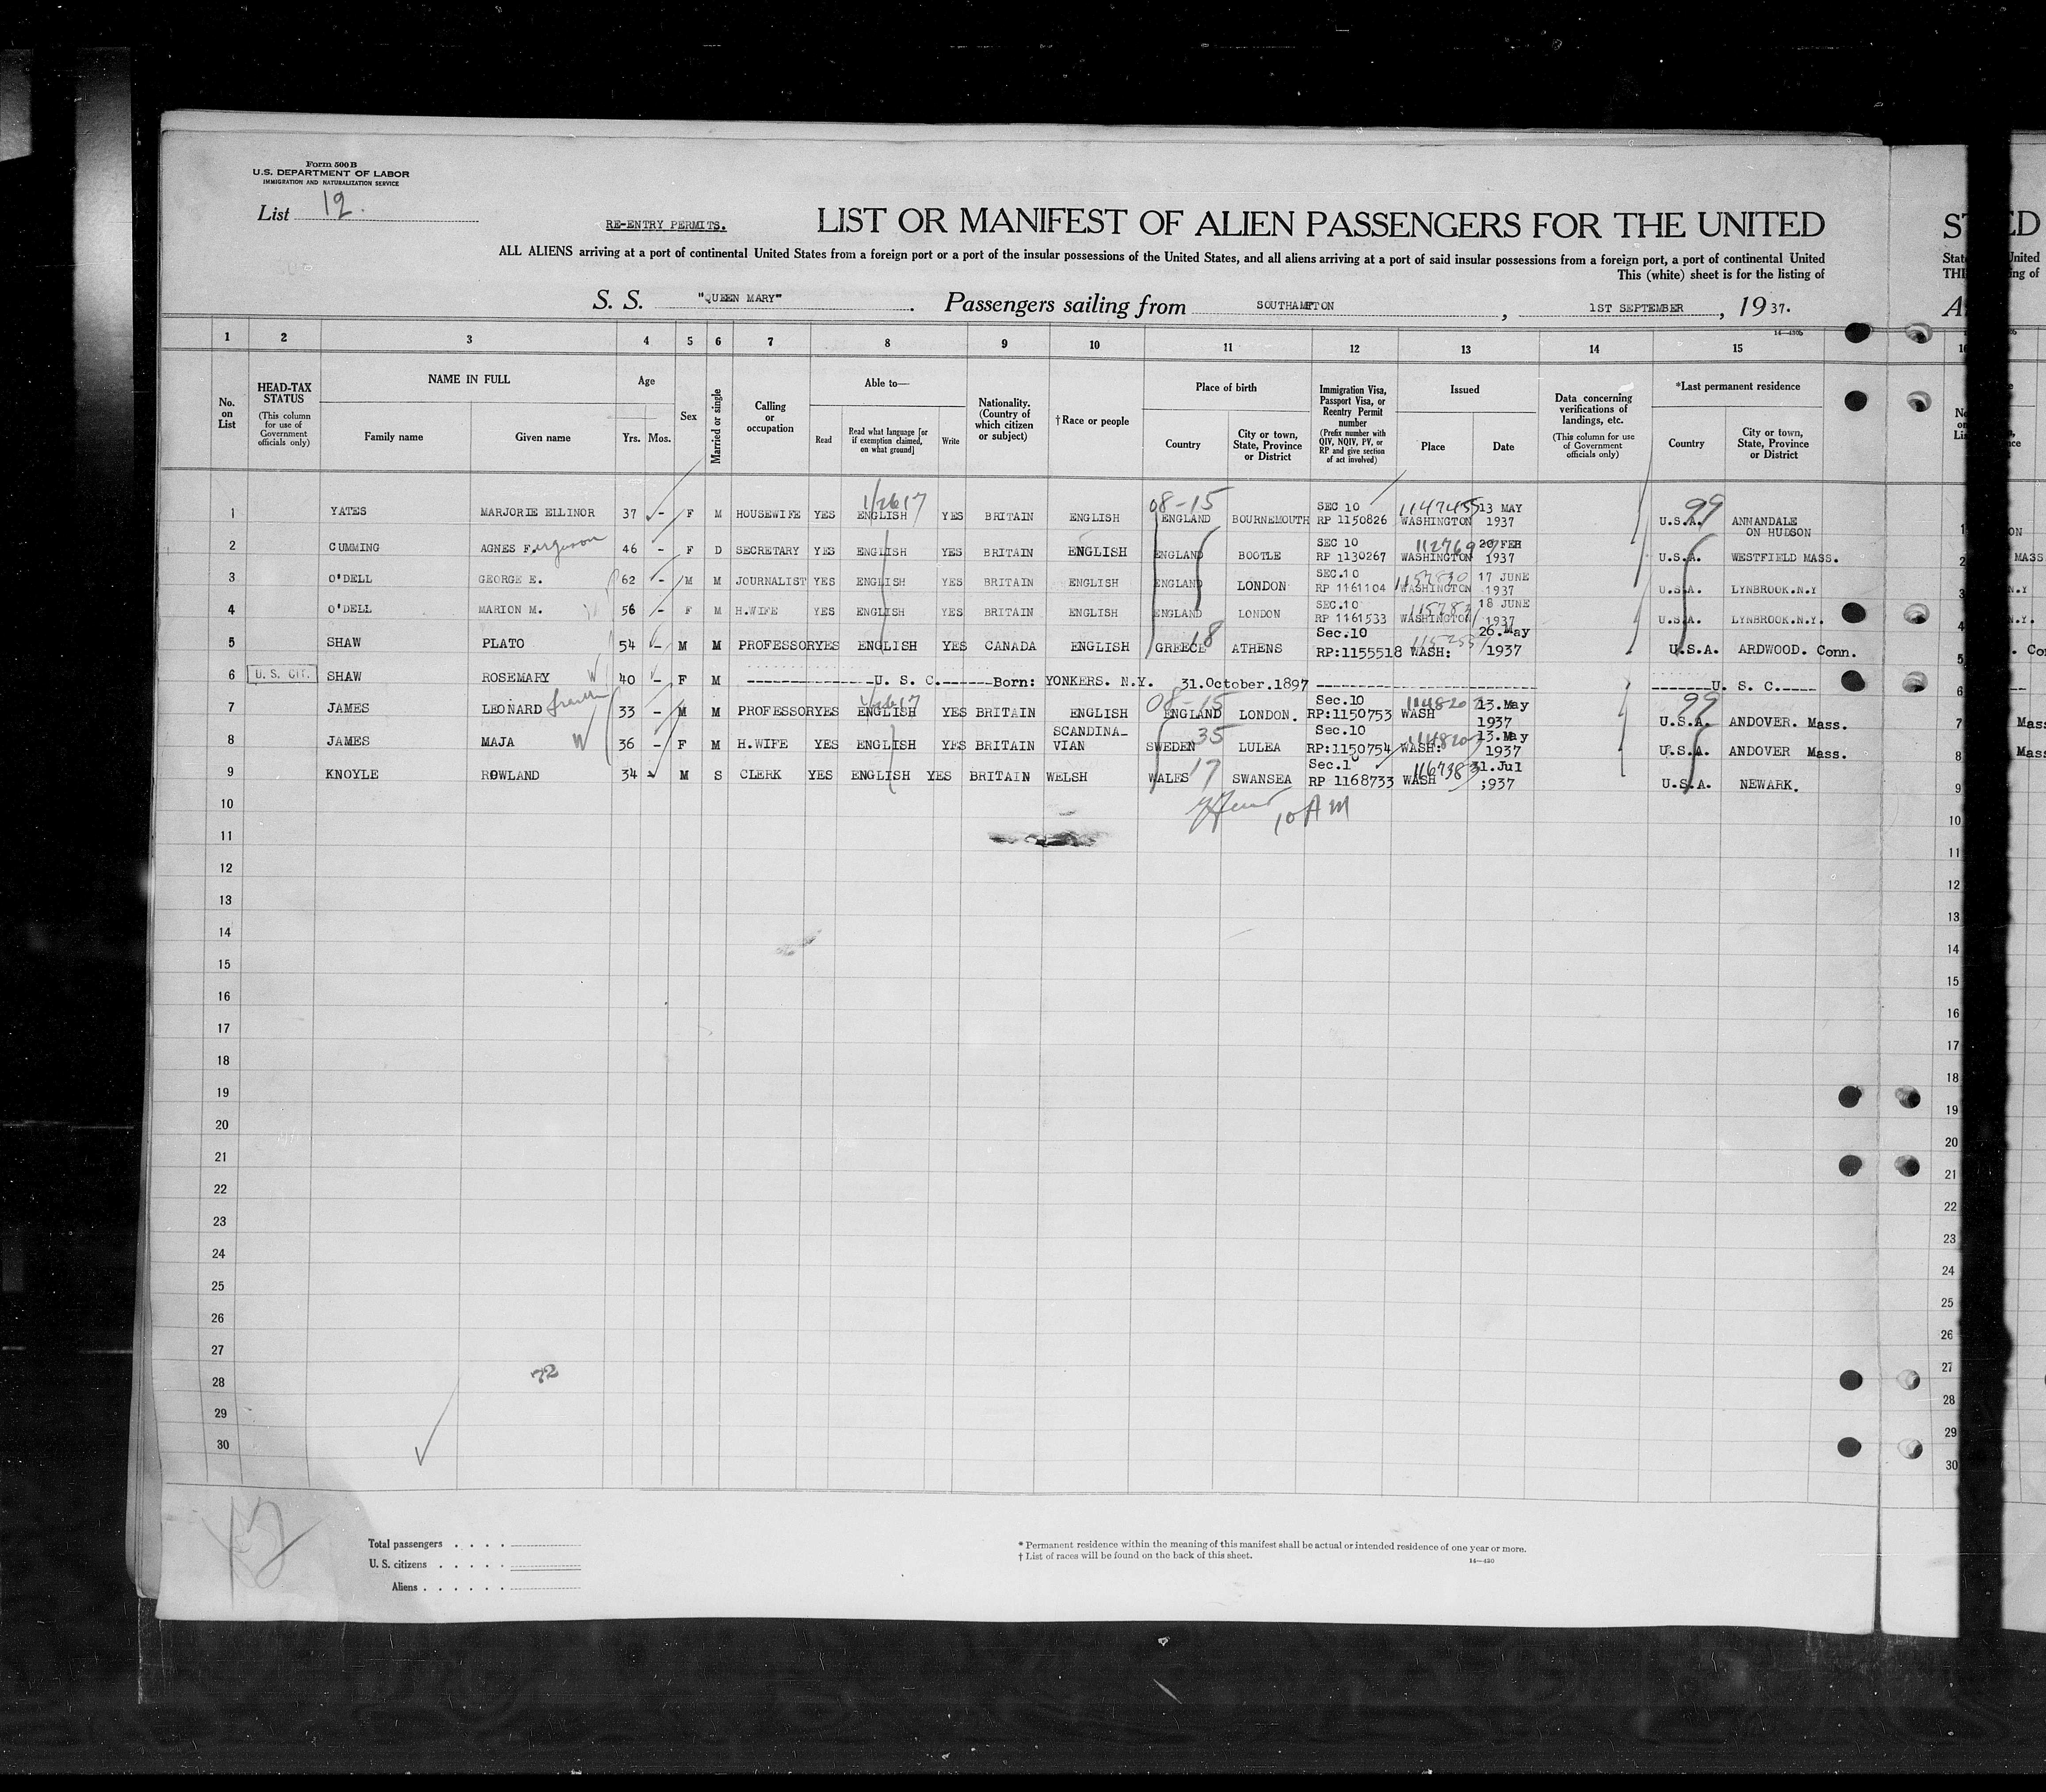 Form 500 B
U.S. DEPARTMENT OF LABOR
IMMIGRATION AND NATURALIZATION SERVICE
List 12.
RE-ENTRY PERMITS.
LIST OR MANIFEST OF ALIEN PASSENGERS FOR THE UNITED
ALL ALIENS arriving at a port of continental United States from a foreign port or a port of the insular possessions of the United States, and all aliens arriving at a port of said insular possessions from a foreign port, a port of continental United
This (white) sheet is for the listing of
S. S. "QUEEN MARY" . Passengers sailing from SOUTHAMPTON , 1ST SEPTEMBER , 19 37.
14—430b
1 2 3 4 5 6 7 8 9 10 11 12 13 14 15
No. on List
HEAD-TAX STATUS (This column for use of Government officials only)
NAME IN FULL
Family name Given name
Age
Yrs. Mos.
Sex
Married or single
Calling or occupation
Able to—
Read Read what language [or if exemption claimed, on what ground] Write
Nationality. (Country of which citizen or subject)
†Race or people
Place of birth
Country City or town, State, Province or District
Immigration Visa, Passport Visa, or Reentry Permit number (Prefix number with QIV, NQIV, PV, or RP and give section of act involved)
Issued
Place Date
Data concerning verifications of landings, etc. (This column for use of Government officials only)
*Last permanent residence
Country City or town, State, Province or District
1 YATES MARJORIE ELLINOR 37 - F M HOUSEWIFE YES ENGLISH YES BRITAIN ENGLISH 08-15 ENGLAND BOURNEMOUTH SEC 10 RP 1150826 WASHINGTON 13 MAY 1937 99 U.S.A. ANNANDALE ON HUDSON
2 CUMMING AGNES Ferguson 46 - F D SECRETARY YES ENGLISH YES BRITAIN ENGLISH ENGLAND BOOTLE SEC 10 RP 1130267 WASHINGTON FEB 1937 U.S.A. WESTFIELD MASS.
3 O'DELL GEORGE E. 62 - M M JOURNALIST YES ENGLISH YES BRITAIN ENGLISH ENGLAND LONDON SEC.10 RP 1161104 WASHINGTON 17 JUNE 1937 U.S.A. LYNBROOK.N.Y
4 O'DELL MARION M. 56 - F M H.WIFE YES ENGLISH YES BRITAIN ENGLISH ENGLAND LONDON SEC.10 RP 1161533 WASHINGTON 18 JUNE 1937 U.S.A. LYNBROOK.N.Y.
5 SHAW PLATO 54 - M M PROFESSOR YES ENGLISH YES CANADA ENGLISH GREECE 18 ATHENS Sec.10 RP:1155518 WASH: 26.May 1937 U.S.A. ARDWOOD. Conn.
6 U. S. CIT. SHAW ROSEMARY W 40 - F M ----------U. S. C.-------Born: YONKERS. N.Y. 31.October.1897 ---------- ------U. S. C.-----
7 JAMES LEONARD 33 - M M PROFESSOR YES ENGLISH YES BRITAIN ENGLISH 08-15 ENGLAND LONDON. Sec.10 RP:1150753 WASH 13.May 1937 99 U.S.A. ANDOVER. Mass.
8 JAMES MAJA W 36 - F M H.WIFE YES ENGLISH YES BRITAIN SCANDINA-VIAN SWEDEN 35 LULEA Sec.10 RP:1150754 WASH: 13.May 1937 U.S.A. ANDOVER Mass.
9 KNOYLE ROWLAND 34 M S CLERK YES ENGLISH YES BRITAIN WELSH WALES 17 SWANSEA Sec.10 RP 1168733 WASH 31.Jul ;937 U.S.A. NEWARK.
10 10 AM
11
12
13
14
15
16
17
18
19
20
21
22
23
24
25
26
27
28 72
29
30
Total passengers . . . .
U. S. citizens . . . . .
Aliens . . . . . .
* Permanent residence within the meaning of this manifest shall be actual or intended residence of one year or more.
† List of races will be found on the back of this sheet.
14—430